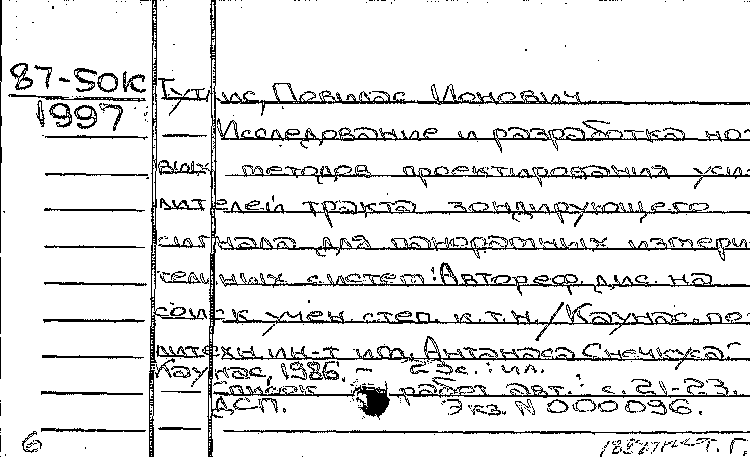 87-50К
1997
Повилас Ионович
Исследование и разработка но-
вых методов проектирования уси-
лителей тракта зондирующего
сигнала для панорамных измери
тельных систем: Автореф. дис. на
соиск. учен. степ. к.т.н. / Каунас. по-
литехн. ин-т им. Антанаса Снечкуса. -
Каунас, 1986. - 23 с. : ил.
Список работ авт.: с. 21-23.
ДСП. Экз. N 000096.
6